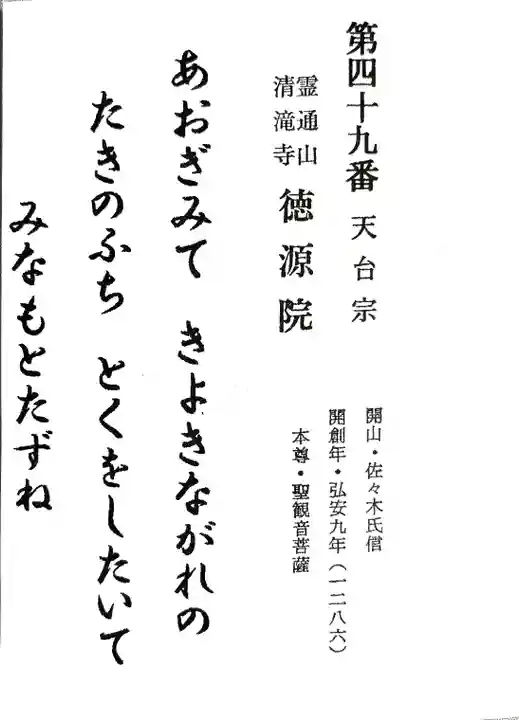 第四十九番 天台宗
霊通山
清滝寺
徳源院
開山・佐々木氏信
開創年・弘安九年(一二八六)
本尊・聖観音菩薩
あおぎみて きよきながれの
たきのふち とくをしたいて
みなもとたずね